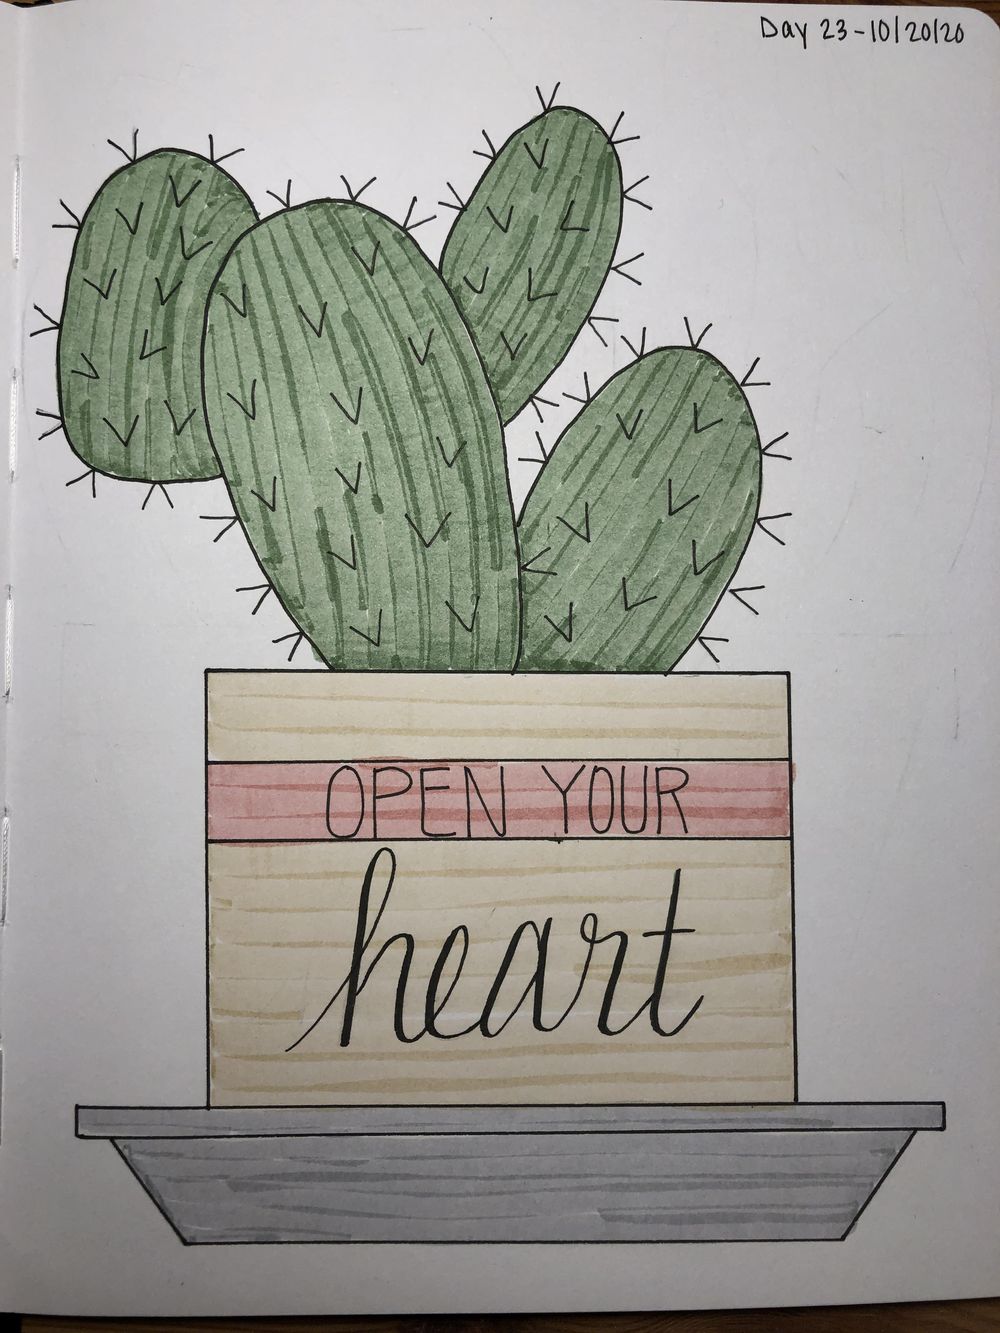 Day 23-10/20/20
OPEN YOUR
heart